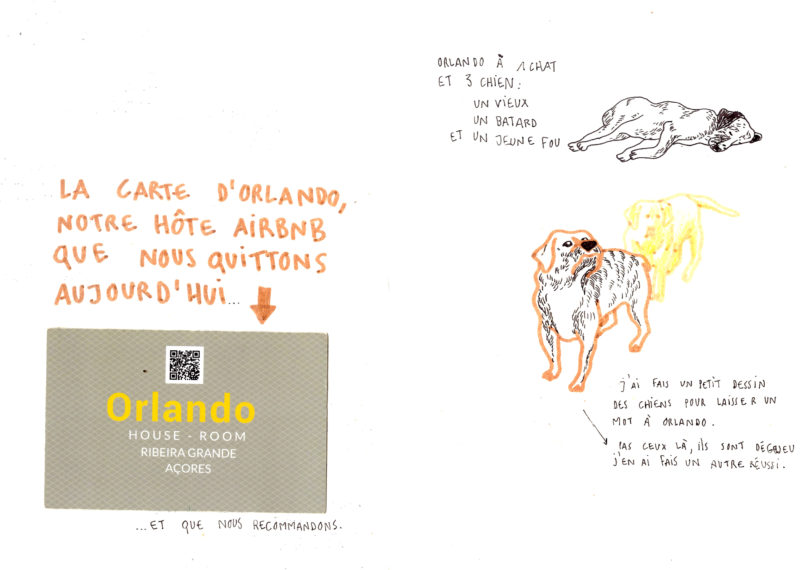 LA CARTE D'ORLANDO,
NOTRE HÔTE AIRBNB
QUE NOUS QUITTONS
AUJOURD'HUI...
Orlando
HOUSE - ROOM
RIBEIRA GRANDE
AÇORES
...ET QUE NOUS RECOMMANDONS.
ORLANDO À 1 CHAT
ET 3 CHIEN:
UN VIEUX
UN BATARD
ET UN JEUNE FOU
J'AI FAIS UN PETIT DESSIN
DES CHIENS POUR LAISSER UN
MOT À ORLANDO.
PAS CEUX LÀ, ILS SONT DÉGUEU
J'EN AI FAIS UN AUTRE RÉUSSI.